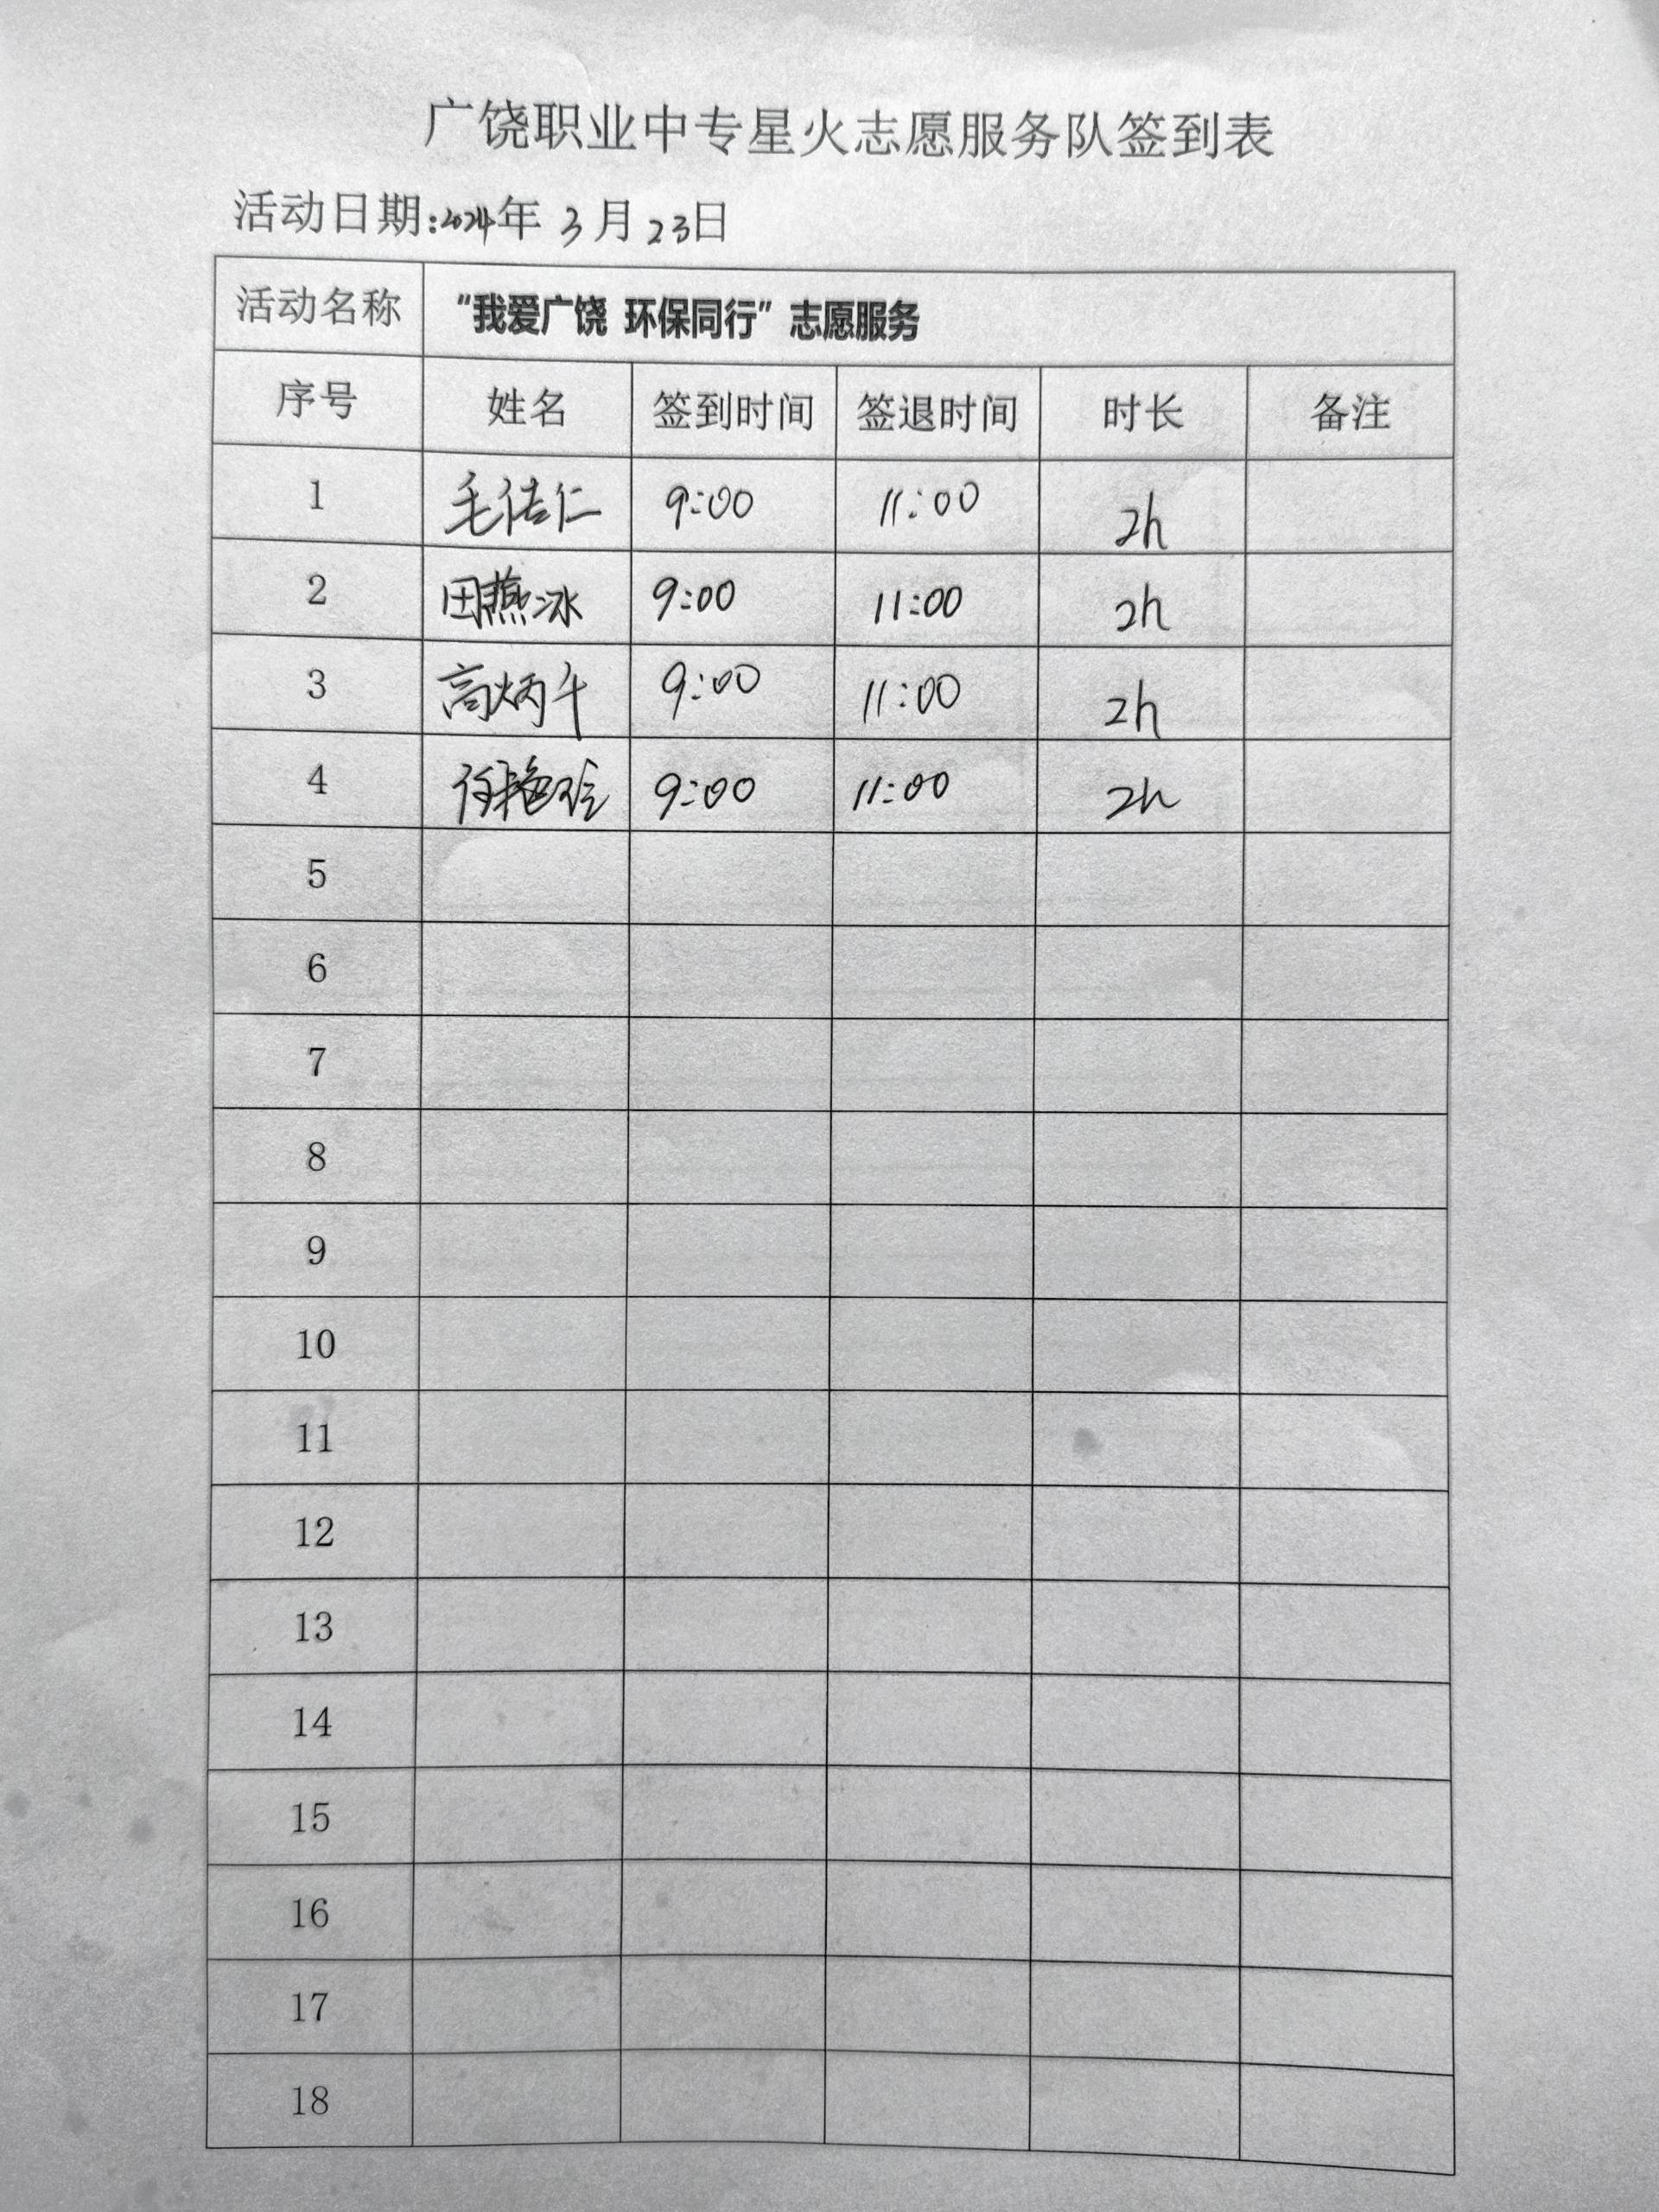 广饶职业中专星火志愿服务队签到表
活动日期:2024年 3 月 23日
活动名称 “我爱广饶 环保同行”志愿服务
序号 姓名 签到时间 签退时间 时长 备注
1 毛佶仁 9:00 11:00 2h
2 田燕冰 9:00 11:00 2h
3 高炳午 9:00 11:00 2h
4 任艳玲 9:00 11:00 2h
5
6
7
8
9
10
11
12
13
14
15
16
17
18